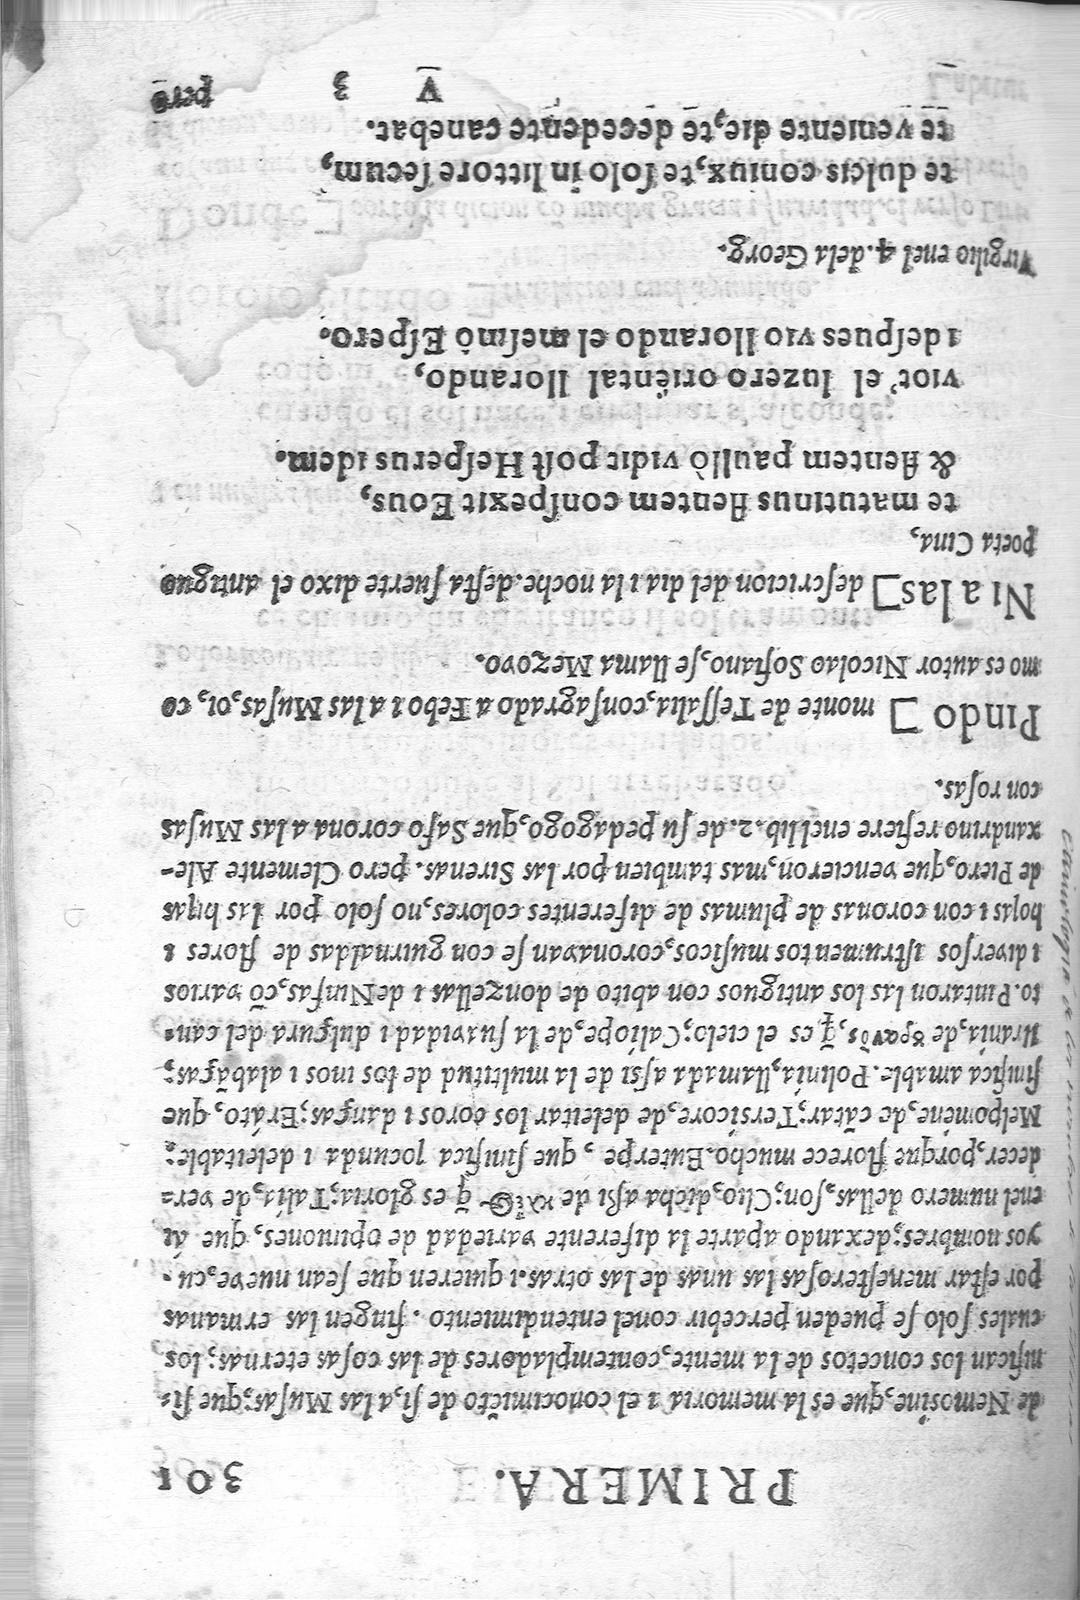 PRIMERA. 301
de Nemosine, que es la memoria i el conocimiẽto de si, a las Musas; que si-
nifican los concetos de la mente, contempladores de las cosas eternas; los
cuales solo se pueden percebir conel entendimiento. fingen las ermanas
por estar menesterosas las unas de las otras. i quieren que sean nueve, cu-
yos nombres; dexando aparte la diferente variedad de opiniones, que ái
enel numero dellas, son; Clio, dicha assi de q̃ es gloria; Talía, de ver-
decer, porque florece mucho. Euterpe, que sinifica jocunda i deleitable;
Melpoméne, de cãtar; Tersícore, de deleitar los coros i danças; Eráto, que
sinifica amable. Polinía, llamada assi de la multitud de los inos i alabãças;
Uránia, de ȣρανὸς, q̃ es el cielo; Calíope, de la suavidad i dulçura del can-
to. Pintaron las los antiguos con abito de donzellas i de Ninfas, cõ varios
i diversos istrumentos musicos, coronavan se con guirnaldas de flores i
hojas i con coronas de plumas de diferentes colores, no solo por las hijas
de Piero, que vencieron, mas tambien por las Sirenas. pero Clemente Ale-
xandrino refiere enel lib. 2. de su pedagogo, que Safo corona a las Musas
con rosas.
Pindo ] monte de Tessalia, consagrado a Febo i a las Musas, oi, co
mo es autor Nicolao Sofiano, se llama Mezovo.
Ni a las ] descricion del dia i la noche. desta suerte dixo el antiguo
poeta Cina,
te matutinus flentem conspexit Eous,
& flentem paullò vidit post Hesperus idem.
viot' el luzero oriental llorando,
i despues vio llorando el mesmo Espero.
Virgilio enel 4. dela Georg.
te dulcis coniux, te solo in littore secum,
te veniente die, te decedente canebat.
V 3 pero